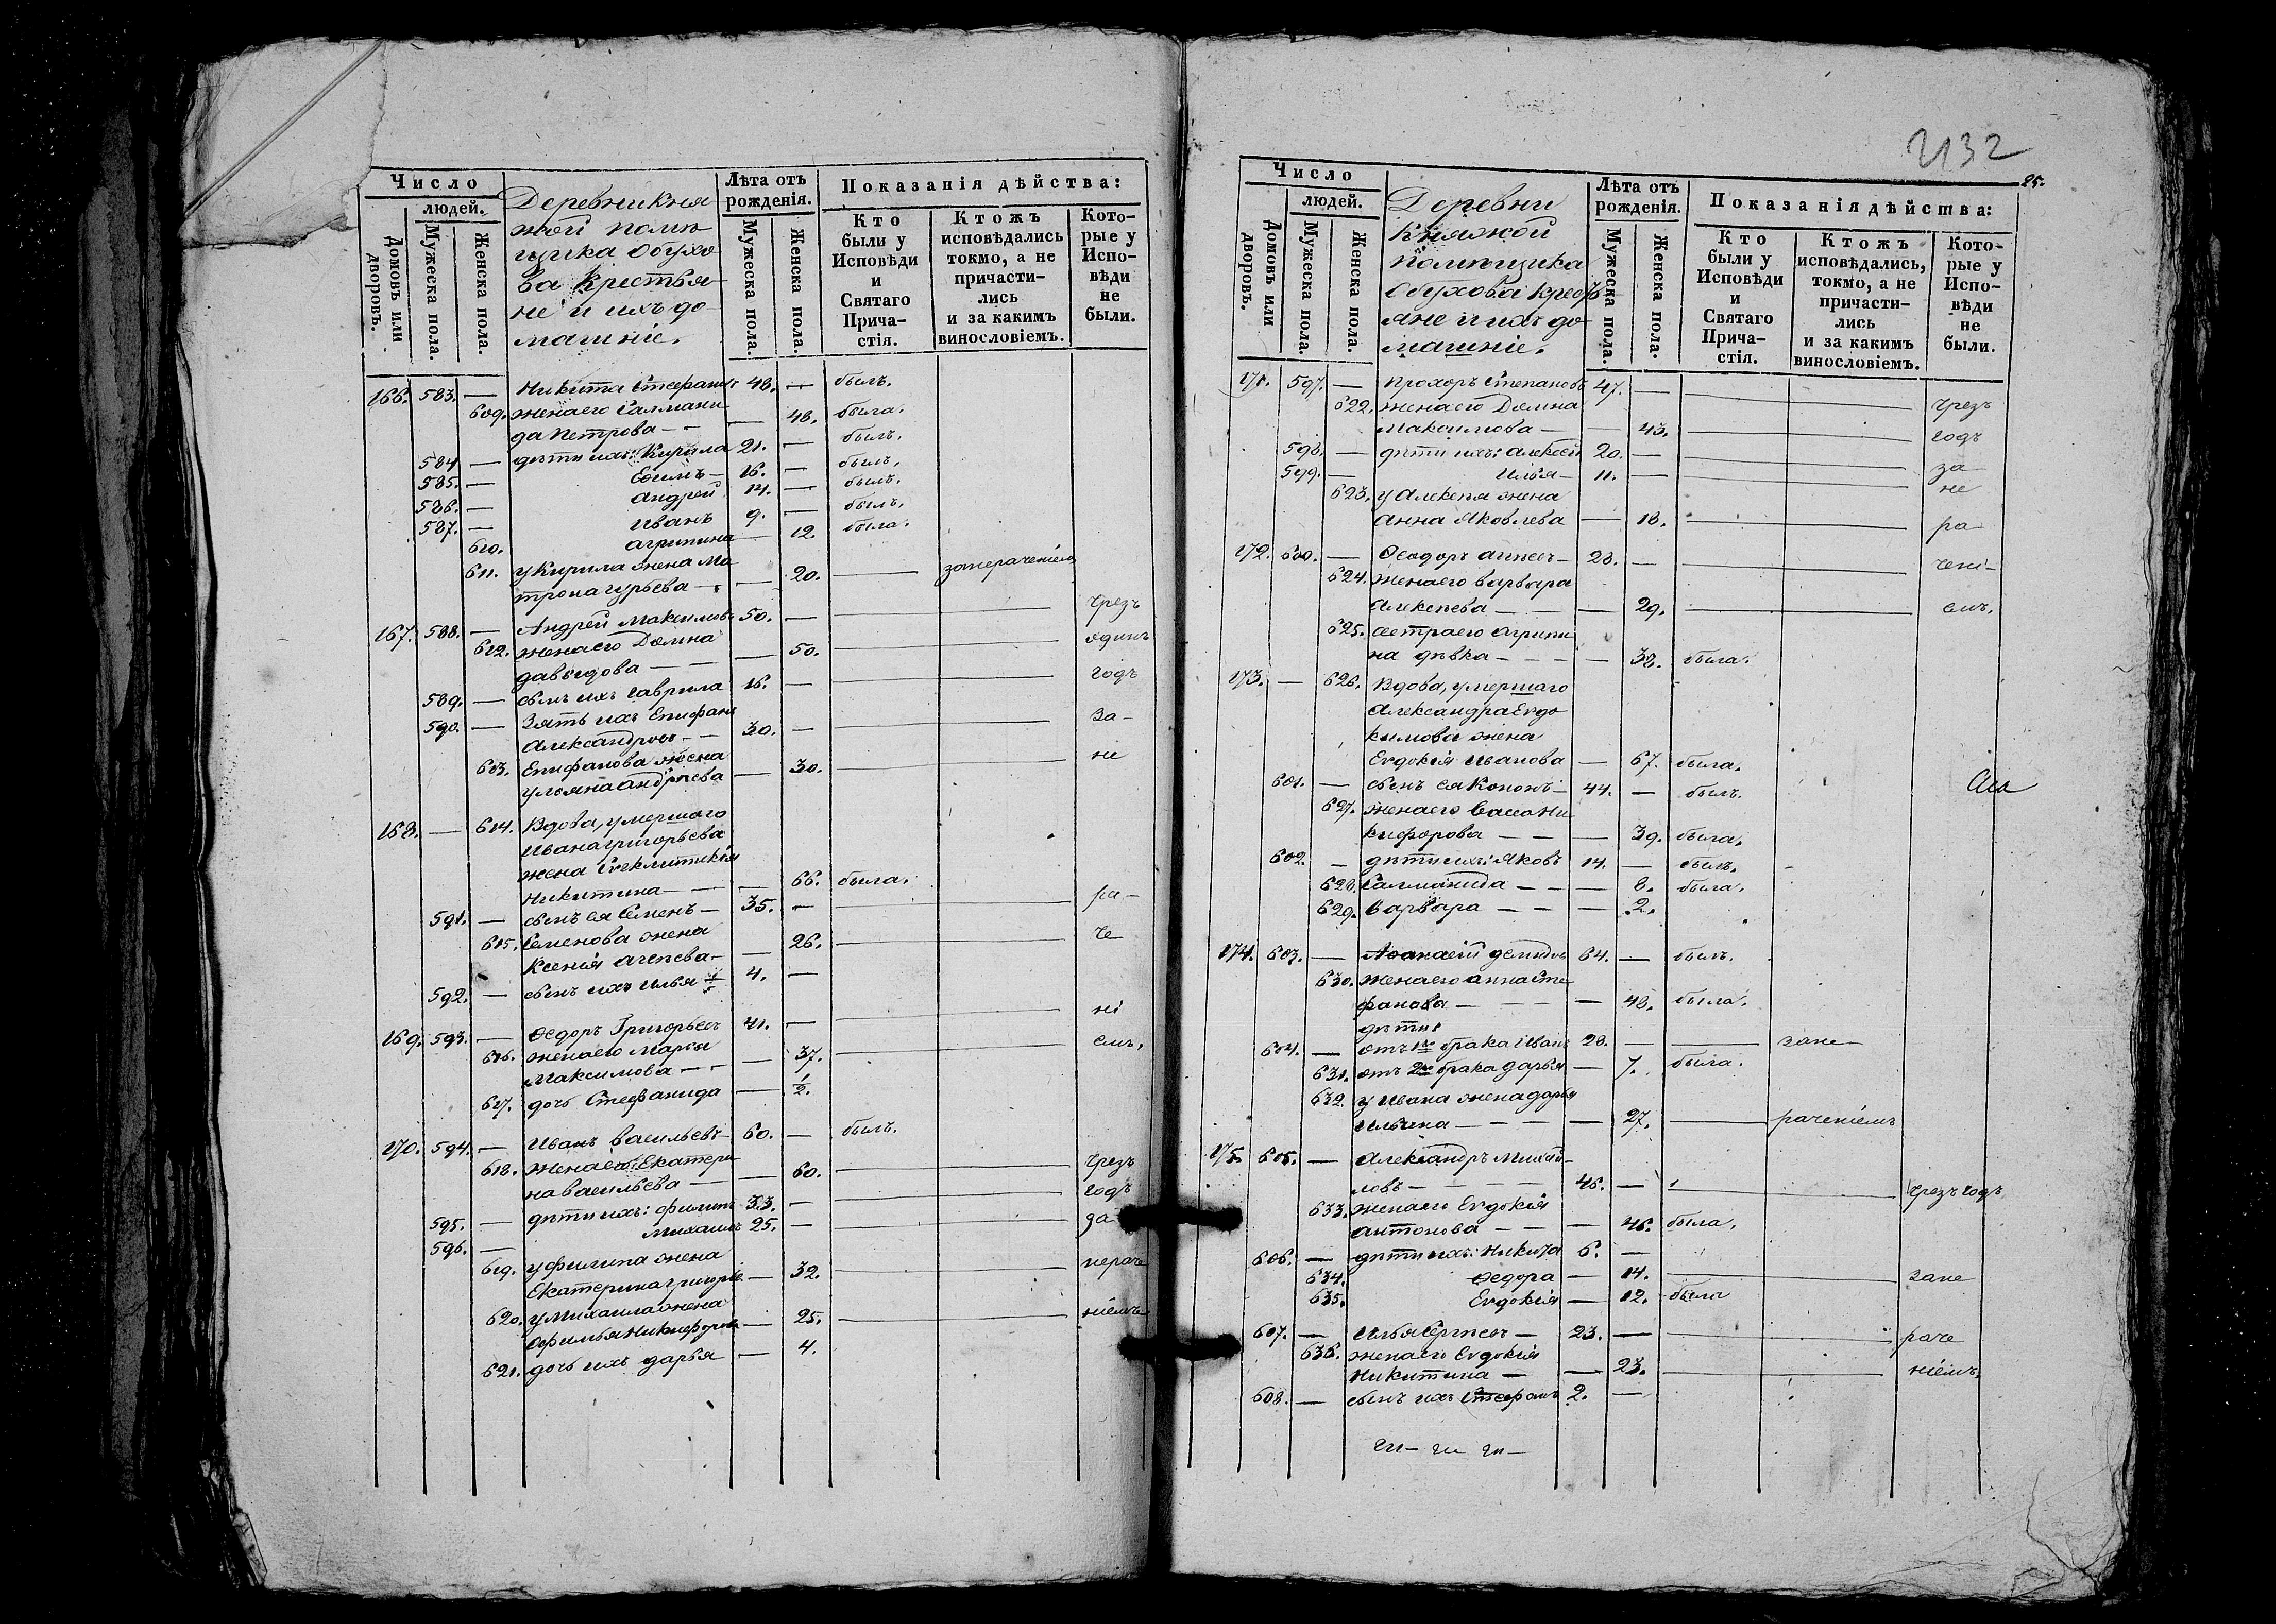 Число
людей.
Домовъ или дворовъ.
Мужеска пола.
Женска пола.
Деревни Кня
жой помѣ
щика Обухо
ва Крестья
не и ихъ до
машніе.
Лѣта отъ рожденія.
Мужеска пола.
Женска пола.
Показанія дѣйства:
Кто были у Исповѣди и Святаго Прича- стія.
Ктожъ исповѣдались токмо, а не причасти- лись и за какимъ винословіемъ.
Кото- рые у Испо- вѣди не были.
166. 583. — Никита Стефановъ 48. — былъ.
609. жена его Саламани
да Петрова — — — 48. была.
584 — дѣти ихъ: Кирила 21. — былъ.
585. — Ефимъ — 16. — былъ.
586. — Андрей 14. — былъ.
587. — Иванъ 9. — былъ.
610. Агрипина — 12. была.
611. у Кирила жена Ма
трона Гурьева — — 20. — занераченіемъ
167. 588. — Андрей Максимовъ 50. — — чрезъ
612. жена его Домна
Давыдова — — — 50. — одинъ
589. — сынъ ихъ Гаврила 16. — — годъ
590. — Зять ихъ Епифанъ
Александровъ — — 30. — — за-
613. Епифанова жена
Ульяна Андрѣева — 30. — не
168. — 614. Вдова, умершаго
Ивана Григорьева
жена Синклитикія
Никитина — — — 66. была.
591. — сынъ ея Семенъ — 35. — — ра-
615. Семенова жена
Ксенія Агѣева — — 26. — че
592. — сынъ ихъ Илья 4. —
169. 593. — Ѳедоръ Григорьевъ 41. — — ні
616. жена его Марья
Максимова — — — 37. — емъ,
617. дочь Стефанида — 1/2.
170. 594. — Иванъ Васильевъ — 60. — былъ.
618. жена его Екатери
на Васильева — — 60. — чрезъ
595. — дѣти ихъ: Филипъ 33. — — годъ
596. — Михаилъ 25. — — за
619. у Филипа жена
Екатерина Григорье — 32. — нераче
620. у Михаила жена
Офимья Никифорова — 25. — ніемъ
621. дочь ихъ Дарья — 4.
2132
25.
Число
людей.
Домовъ или дворовъ.
Мужеска пола.
Женска пола.
Деревни
Княжой
помѣщика
Обухова Кресть
яне и ихъ до
машніе.
Лѣта отъ рожденія.
Мужеска пола.
Женска пола.
Показанія дѣйства:
Кто были у Исповѣди и Святаго Прича- стія.
Ктожъ исповѣдались, токмо, а не причасти- лись и за какимъ винословіемъ.
Кото- рые у Испо- вѣди не были.
171. 597. — Прохоръ Степановъ 47. — — чрезъ
622. жена его Домна
Максимова — — 43. — годъ
598. — дѣти ихъ: Алексѣй 20. — — за
599. — Илья — 11. — — не
623. у Алексѣя жена
Анна Яковлева — 18. — ра
172. 600. — Ѳеодоръ Агѣевъ — 28. — — чені-
624. жена его Варвара
Алексѣева — — — 29. — емъ.
625. сестра его Агрипи
на дѣвка — — — — 32. была.
173. — 626. Вдова, умершаго
Александра Евдо
кимова жена
Евдокія Иванова — 67. была.
601. — сынъ ея Кононъ — 44. — былъ.
627. жена его Васса Ни
кифорова — — — 39. была.
602. — дѣти ихъ: Яковъ 14. — былъ.
628. Саламанида — — — 8. была.
629. Варвара — — — 2.
174. 603. — Аѳанасій Демидовъ 64. — былъ.
630. жена его Анна Сте
фанова — — — — 48. была.
дѣти:
604. — отъ 1го брака Иванъ 28. — — зане
631. отъ 2го брака Дарья — 7. была.
632. у Ивана жена Дарья
Ильина — — — — 27. — раченіемъ
175. 605. — Александръ Михай-
ловъ — — — — 46. — — чрезъ годъ
633. жена его Евдокія
Антонова — — — 46. была.
606. — дѣти ихъ: Никита 6. —
634. Ѳедора — 14. — зане
635. Евдокія — 12. была
607. — Илья Сергѣевъ — 23. — — раче
636. жена его Евдокія
Никитина — — 23. — ніемъ.
608. — сынъ ихъ Стефанъ 2. —